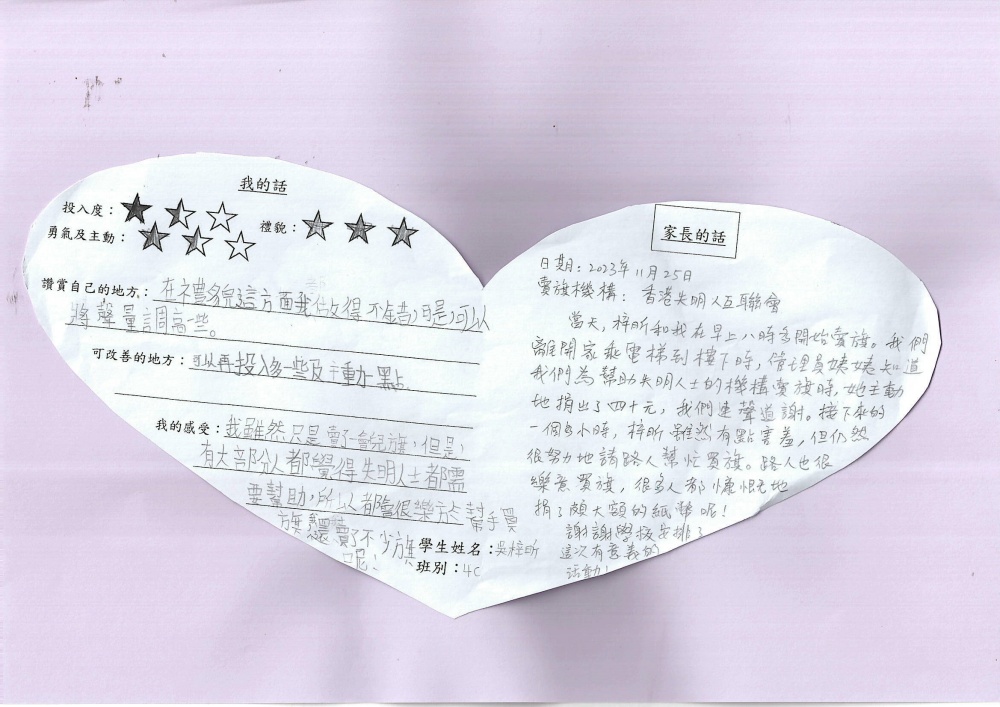 我的話
投入度：
禮貌：
勇氣及主動：
讚賞自己的地方：在禮貌這方面我做得不錯，可是，可以
將聲量調高一些。
可改善的地方：可以再投入多一些及主動一點。
我的感受：我雖然只是賣了一會兒旗，但是，
有大部分人都覺得失明人士都需
要幫助，所以都會很樂於幫手買
旗，還賣了不少旗
呢！
學生姓名：吳梓昕
班別：4C
家長的話
日期：2023年11月25日
賣旗機構：香港失明人互聯會
當天，梓昕和我在早上八時多開始賣旗。我們
離開家乘電梯到樓下時，管理員姨姨知道
我們為幫助失明人士的機構賣旗時，她主動
地捐出了四十元，我們連聲道謝。接下來的
一個多小時，梓昕雖然有點害羞，但仍然
很努力地請路人幫忙買旗。路人也很
樂意買旗，很多人都慷慨地
捐了頗大額的紙幣呢！
謝謝學校安排了
這次有意義的
活動！